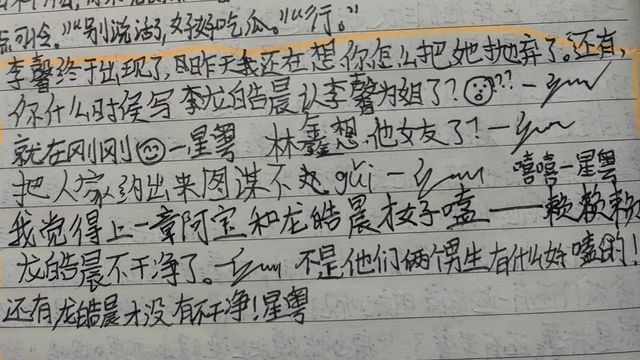 点可令。”“别说话，好好吃瓜。”“行。”
李馨终于出现了，昨天我还在想你怎么把她抛弃了。还有，
你什么时侯写李龙皓晨认李馨为姐了？??
就在刚刚 —星粤 林鑫想他女友了？—
把人家约出来图谋不轨guǐ — 嘻嘻—星粤
我觉得上一章阿宝和龙皓晨才好嗑——赖赖赖
龙皓晨不干净了。— 不是他们俩个男生有什么好嗑的！
还有龙皓晨才没有不干净！星粤